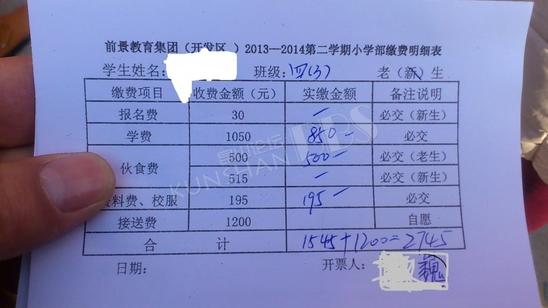 前景教育集团（开发区 ）2013—2014第二学期小学部缴费明细表
学生姓名： 班级：四(3) 老（新）生
缴费项目 收费金额（元） 实缴金额 备注说明
报名费 30 — 必交（新生）
学费 1050 850— 必交
伙食费 500 500— 必交（老生）
515 — 必交（新生）
资料费、校服 195 195— 必交
接送费 1200 自愿
合 计 1545+1200=2745
日期： 开票人： 巍
KUNSHAN BBS